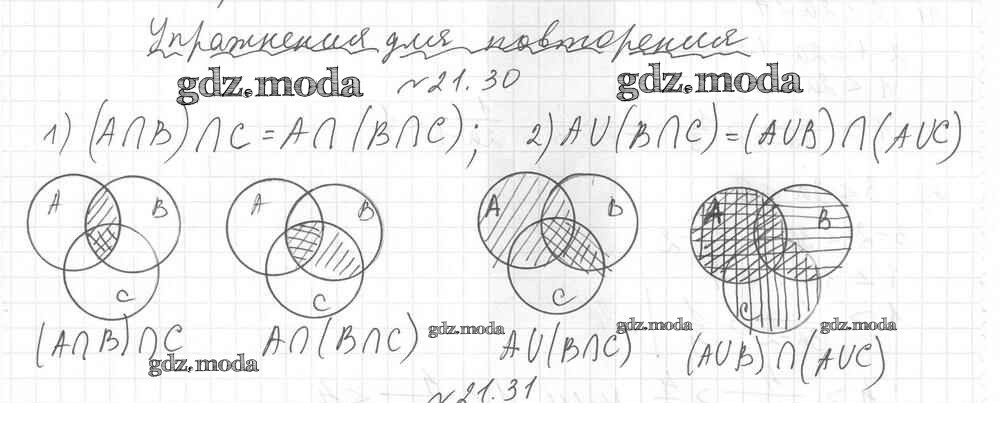 Упражнения для повторения
gdz.moda №21.30 gdz.moda
1) (A∩B)∩C=A∩(B∩C); 2) A∪(B∩C)=(A∪B)∩(A∪C)
A B A B A B A B
C C C C
(A∩B)∩C A∩(B∩C) gdz.moda A∪(B∩C) gdz.moda (A∪B)∩(A∪C) gdz.moda
gdz.moda
№21.31